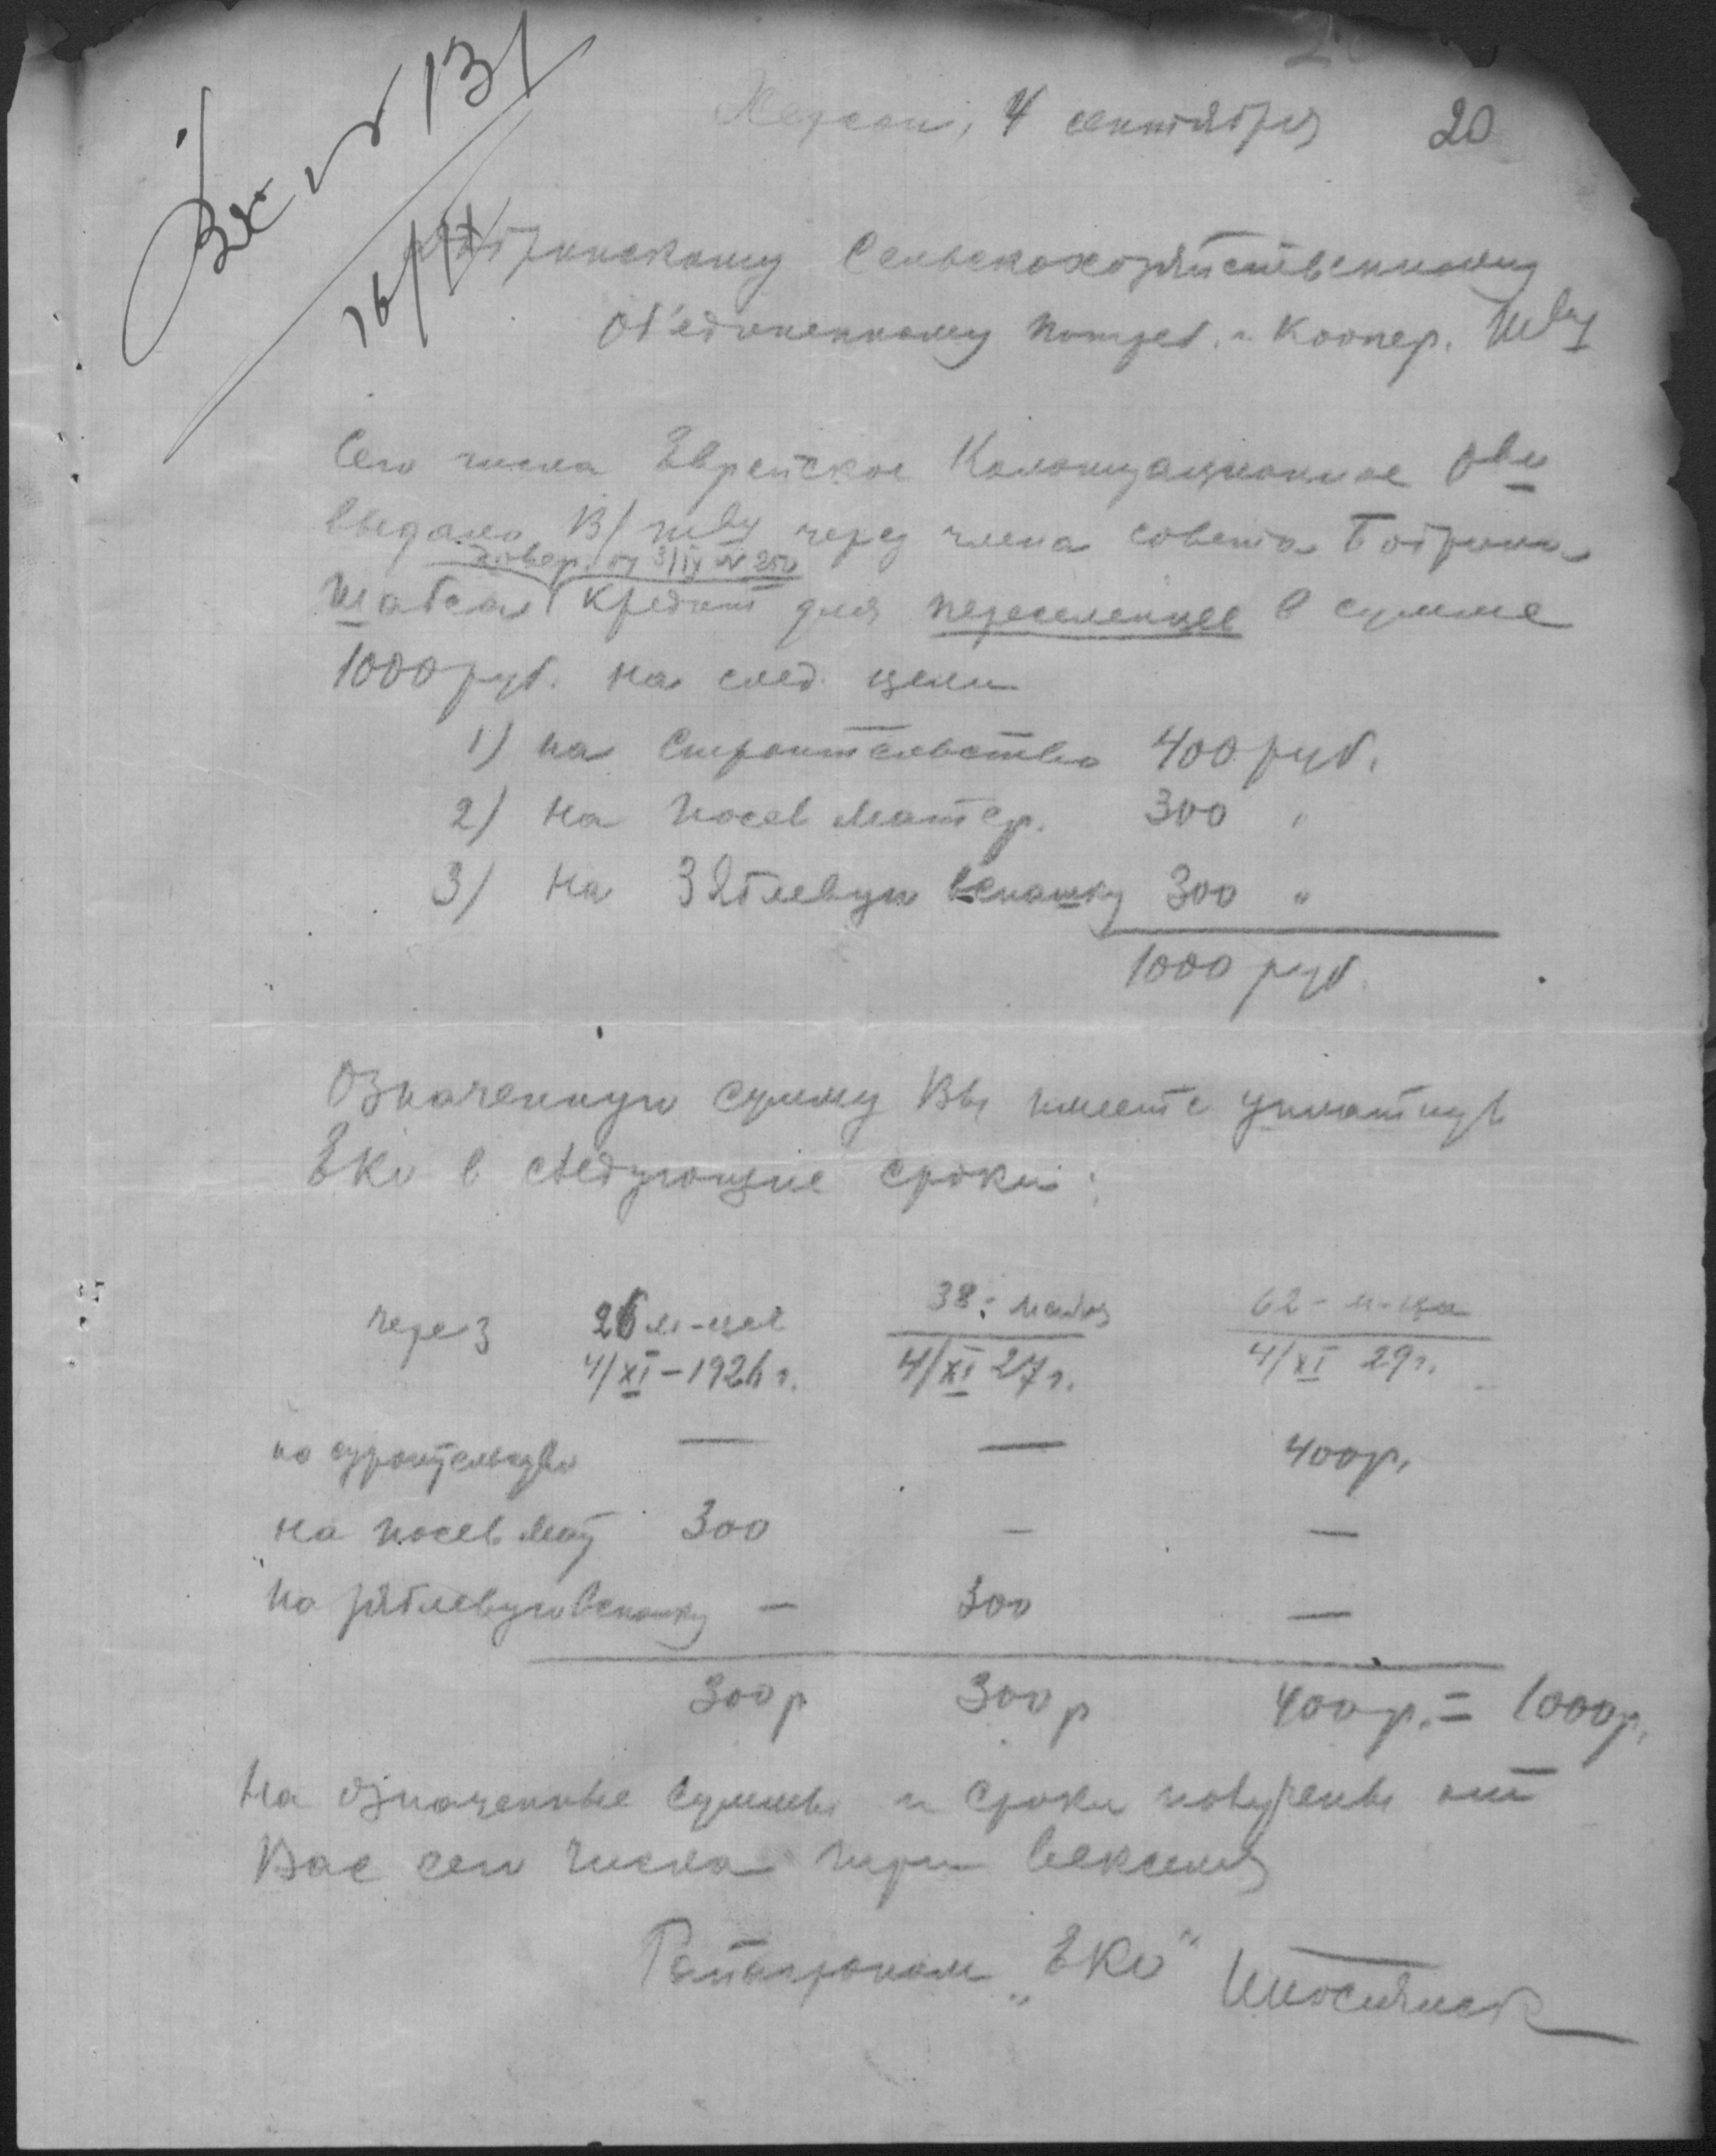 Вх. № 131
16/IX
Херсон, 4 сентября 20
Сельскохозяйственному
Об'единенному Потреб. и Коопер. Т-ву
Сего числа Еврейское Колонизационное О-во
выдало В/ т-ву через члена совета Бобрина
довер. от 3/IX № 250
кредит для переселенцев в сумме
1000 руб. на след. цели
1) на Строительство 400 руб.
2) на Посев Матер. 300 "
3) на Зяблевую вспашку 300 "
1000 руб.
Означенную сумму Вы имеете уплатить
ЕКО в следующие сроки:
через 26 м-цев 38 62 - м-ца
4/XI - 1926 г. 4/XI 27 г. 4/XI 29 г.
на строительство — — 400 р.
на посев мат 300 — —
на зяблевую вспашку — 300 —
300 р 300 р 400 р. = 1000 р.
На означенные суммы и сроки получены от
Вас сего числа три векселя
"ЕКО"